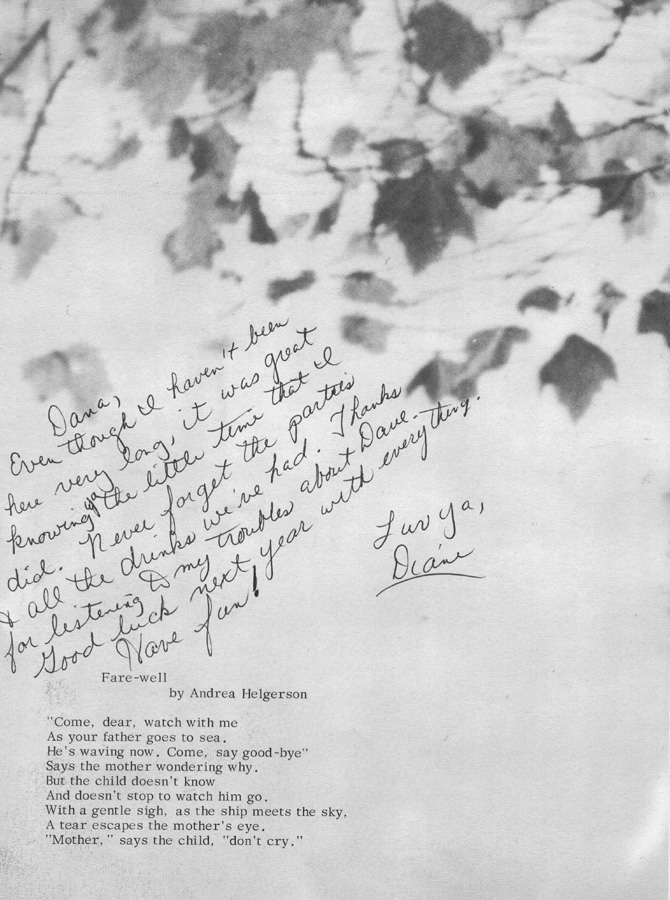 Dana,
Even though I haven't been
here very long, it was great
knowing ya the little time that I
did. Never forget the parties
& all the drinks we've had. Thanks
for listening to my troubles about Dave.
Good luck next year with everything.
Have fun!
Luv ya,
Diane
Fare-well
by Andrea Helgerson
"Come, dear, watch with me
As your father goes to sea.
He's waving now. Come, say good-bye"
Says the mother wondering why.
But the child doesn't know
And doesn't stop to watch him go.
With a gentle sigh, as the ship meets the sky,
A tear escapes the mother's eye.
"Mother," says the child, "don't cry."